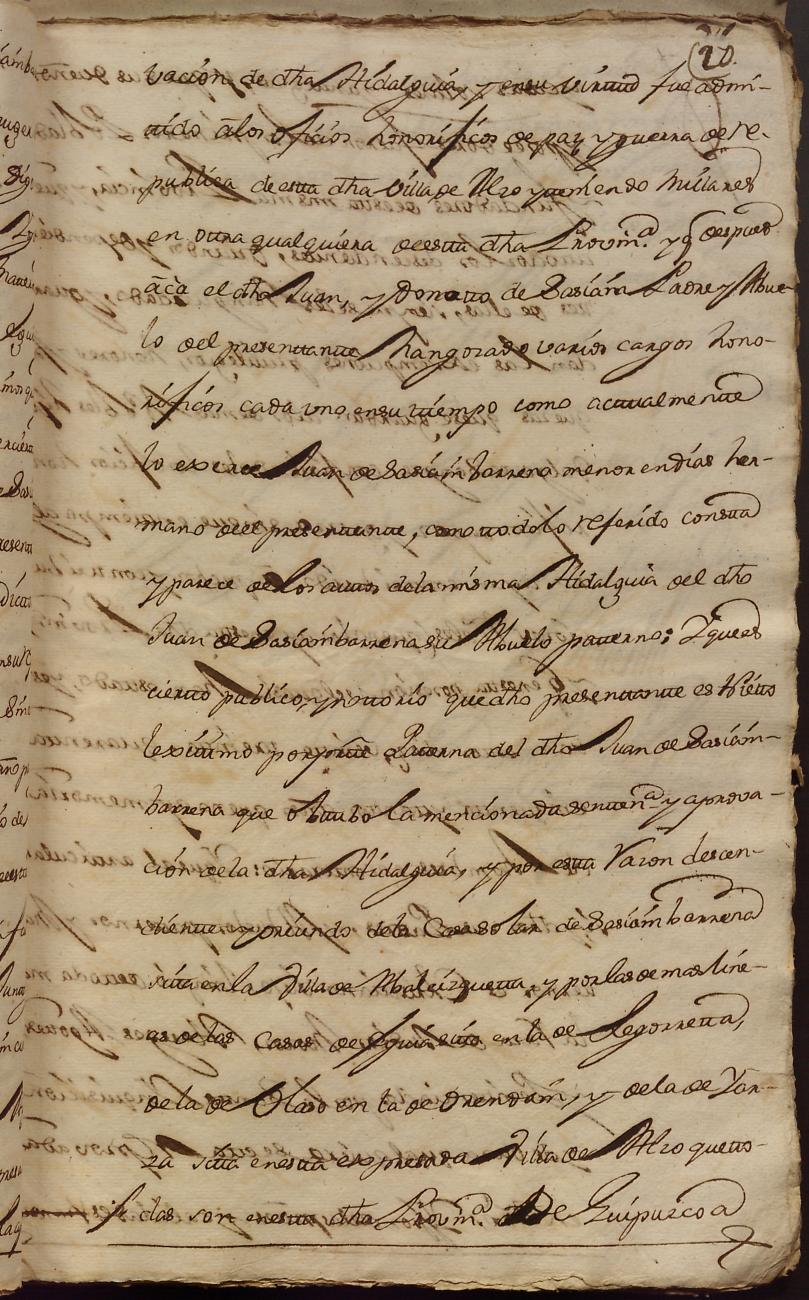 20.
vacion de dha Hidalguia, y ensu virtud fue admi-
tido alos oficios honorificos de paz y guerra de re-
publica de esta dha villa de Alzo y teniendo millares
en otra qualquiera de esta dha Provin.ª y q despues
acà el dho Juan, y Donatto de Sasiain Padre y Abue-
lo del presenttante han gozado varios cargos hono-
rificos cada uno ensu tiempo como actualmente
lo exerce Juan de Sasiambarrena menor en dias her-
mano de el presenttante, como ttodo lo referido consta
y parece de los auttos de la misma Hidalguia del dho
Juan de Sasiambarrena su Abuelo patterno; Y que es
ciertto publico, y nottorio que dho presenttante es Nietto
lexitimo por partte Patterna del dho Juan de Sasiam-
barrena que obtubo la mencionada senten.ª y aprova-
cion de la dha Hidalguia, y por esta razon descen-
diente y oriundo dela Casa solar de Sasiambarrena
sita en la Villa de Abalcizquetta, y por las demas line-
as de las Casas de Eguia sito en la de Legorretta,
de la de Olaso en la de Orendain, y de la de Yar-
za sita en esta expresada Villa de Alzo que tto-
das son en esta dha Provin.ª de Guipuzcoa